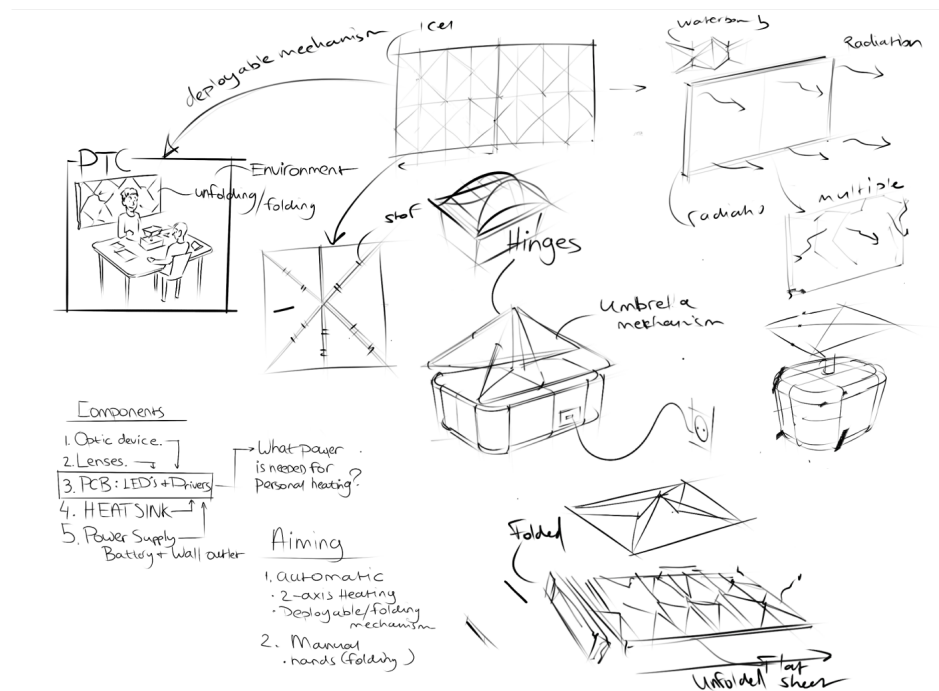 deployable mechanism
1 cel
waterbomb
Radiation
PTC
Environment
unfolding/
folding
stof
Hinges
multiple
Umbrella
mechanism
Components
1. Optic device.
2. Lenses.
3. PCB: LED's + Drivers
4. HEATSINK
5. Power Supply
Battery + Wall outlet
What power
is needed for
personal heating?
Aiming
1. automatic
• 2-axis Heating
• Deployable/folding
mechanism
2. Manual
• hands (folding)
Folded
Flat
Unfolded sheet